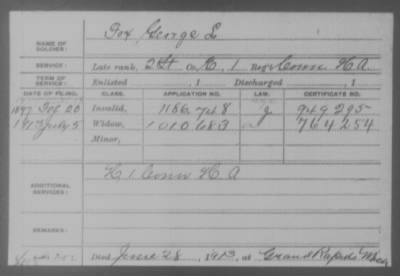 Fox George L
NAME OF SOLDIER:
SERVICE: Late rank, 2 Lt Co. G, 1 Reg't Conn H. A.
TERM OF SERVICE: Enlisted , 1 Discharged , 1
DATE OF FILING. CLASS. APPLICATION NO. LAW. CERTIFICATE NO.
1897 Feb 20 Invalid, 1186,748 g 949295
1913 July 5 Widow, 1010683 764254
Minor,
ADDITIONAL SERVICES: H, 1 Conn H A
REMARKS:
Died June 28, 1913, at Grand Rapids Mich